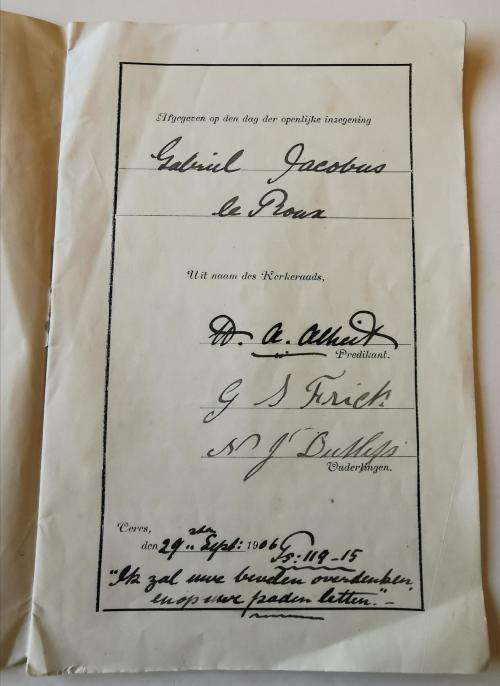 Afgegeven op den dag der openlijke inzegening
Gabriel Jacobus
le Roux
Uit naam des Kerkeraads,
W. A. Alheit
Predikant.
G S Frick
N J
Ouderlingen.
Ceres,
den 29ste Sept: 1906 Ps: 119-15
"Ik zal uwe bevelen overdenken,
en op uwe paden letten."-